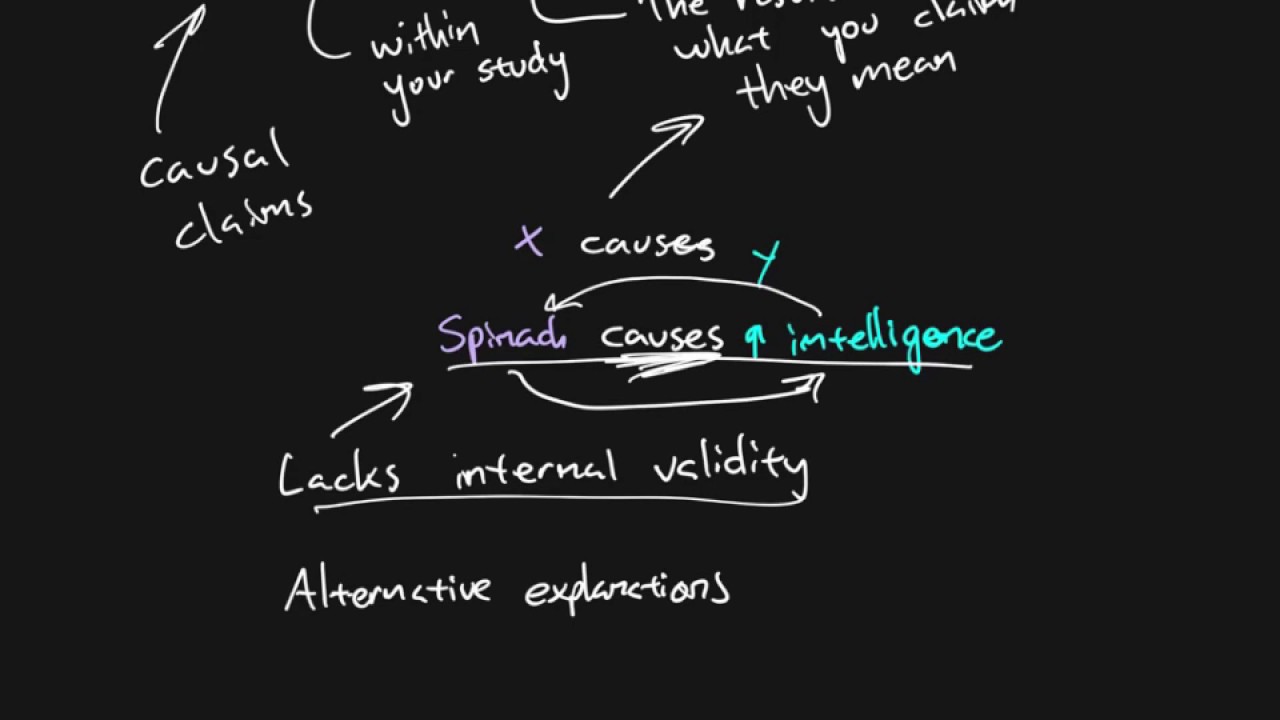 The
within
your study
what you claim
they mean
causal
claims
X causes y
Spinach causes intelligence
Lacks internal validity
Alternative explanations